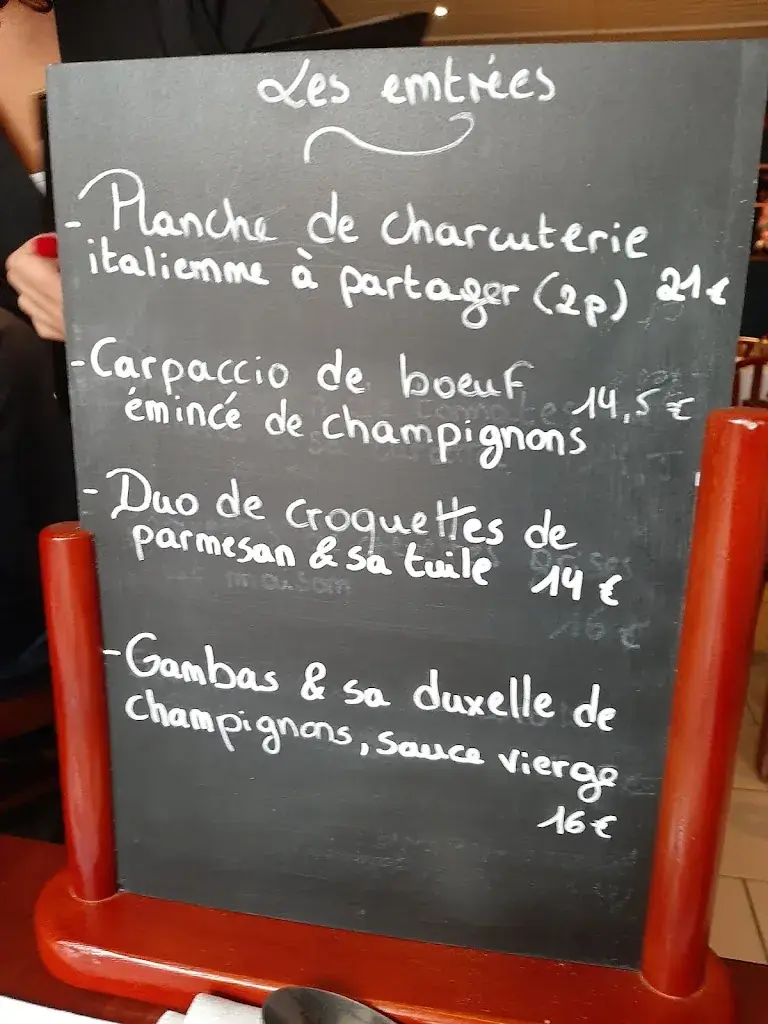 Les entrées
- Planche de charcuterie
italienne à partager (2p) 21€
- Carpaccio de boeuf
émincé de champignons 14,5 €
- Duo de croquettes de
parmesan & sa tuile 14 €
- Gambas & sa duxelle de
champignons, sauce vierge
16€